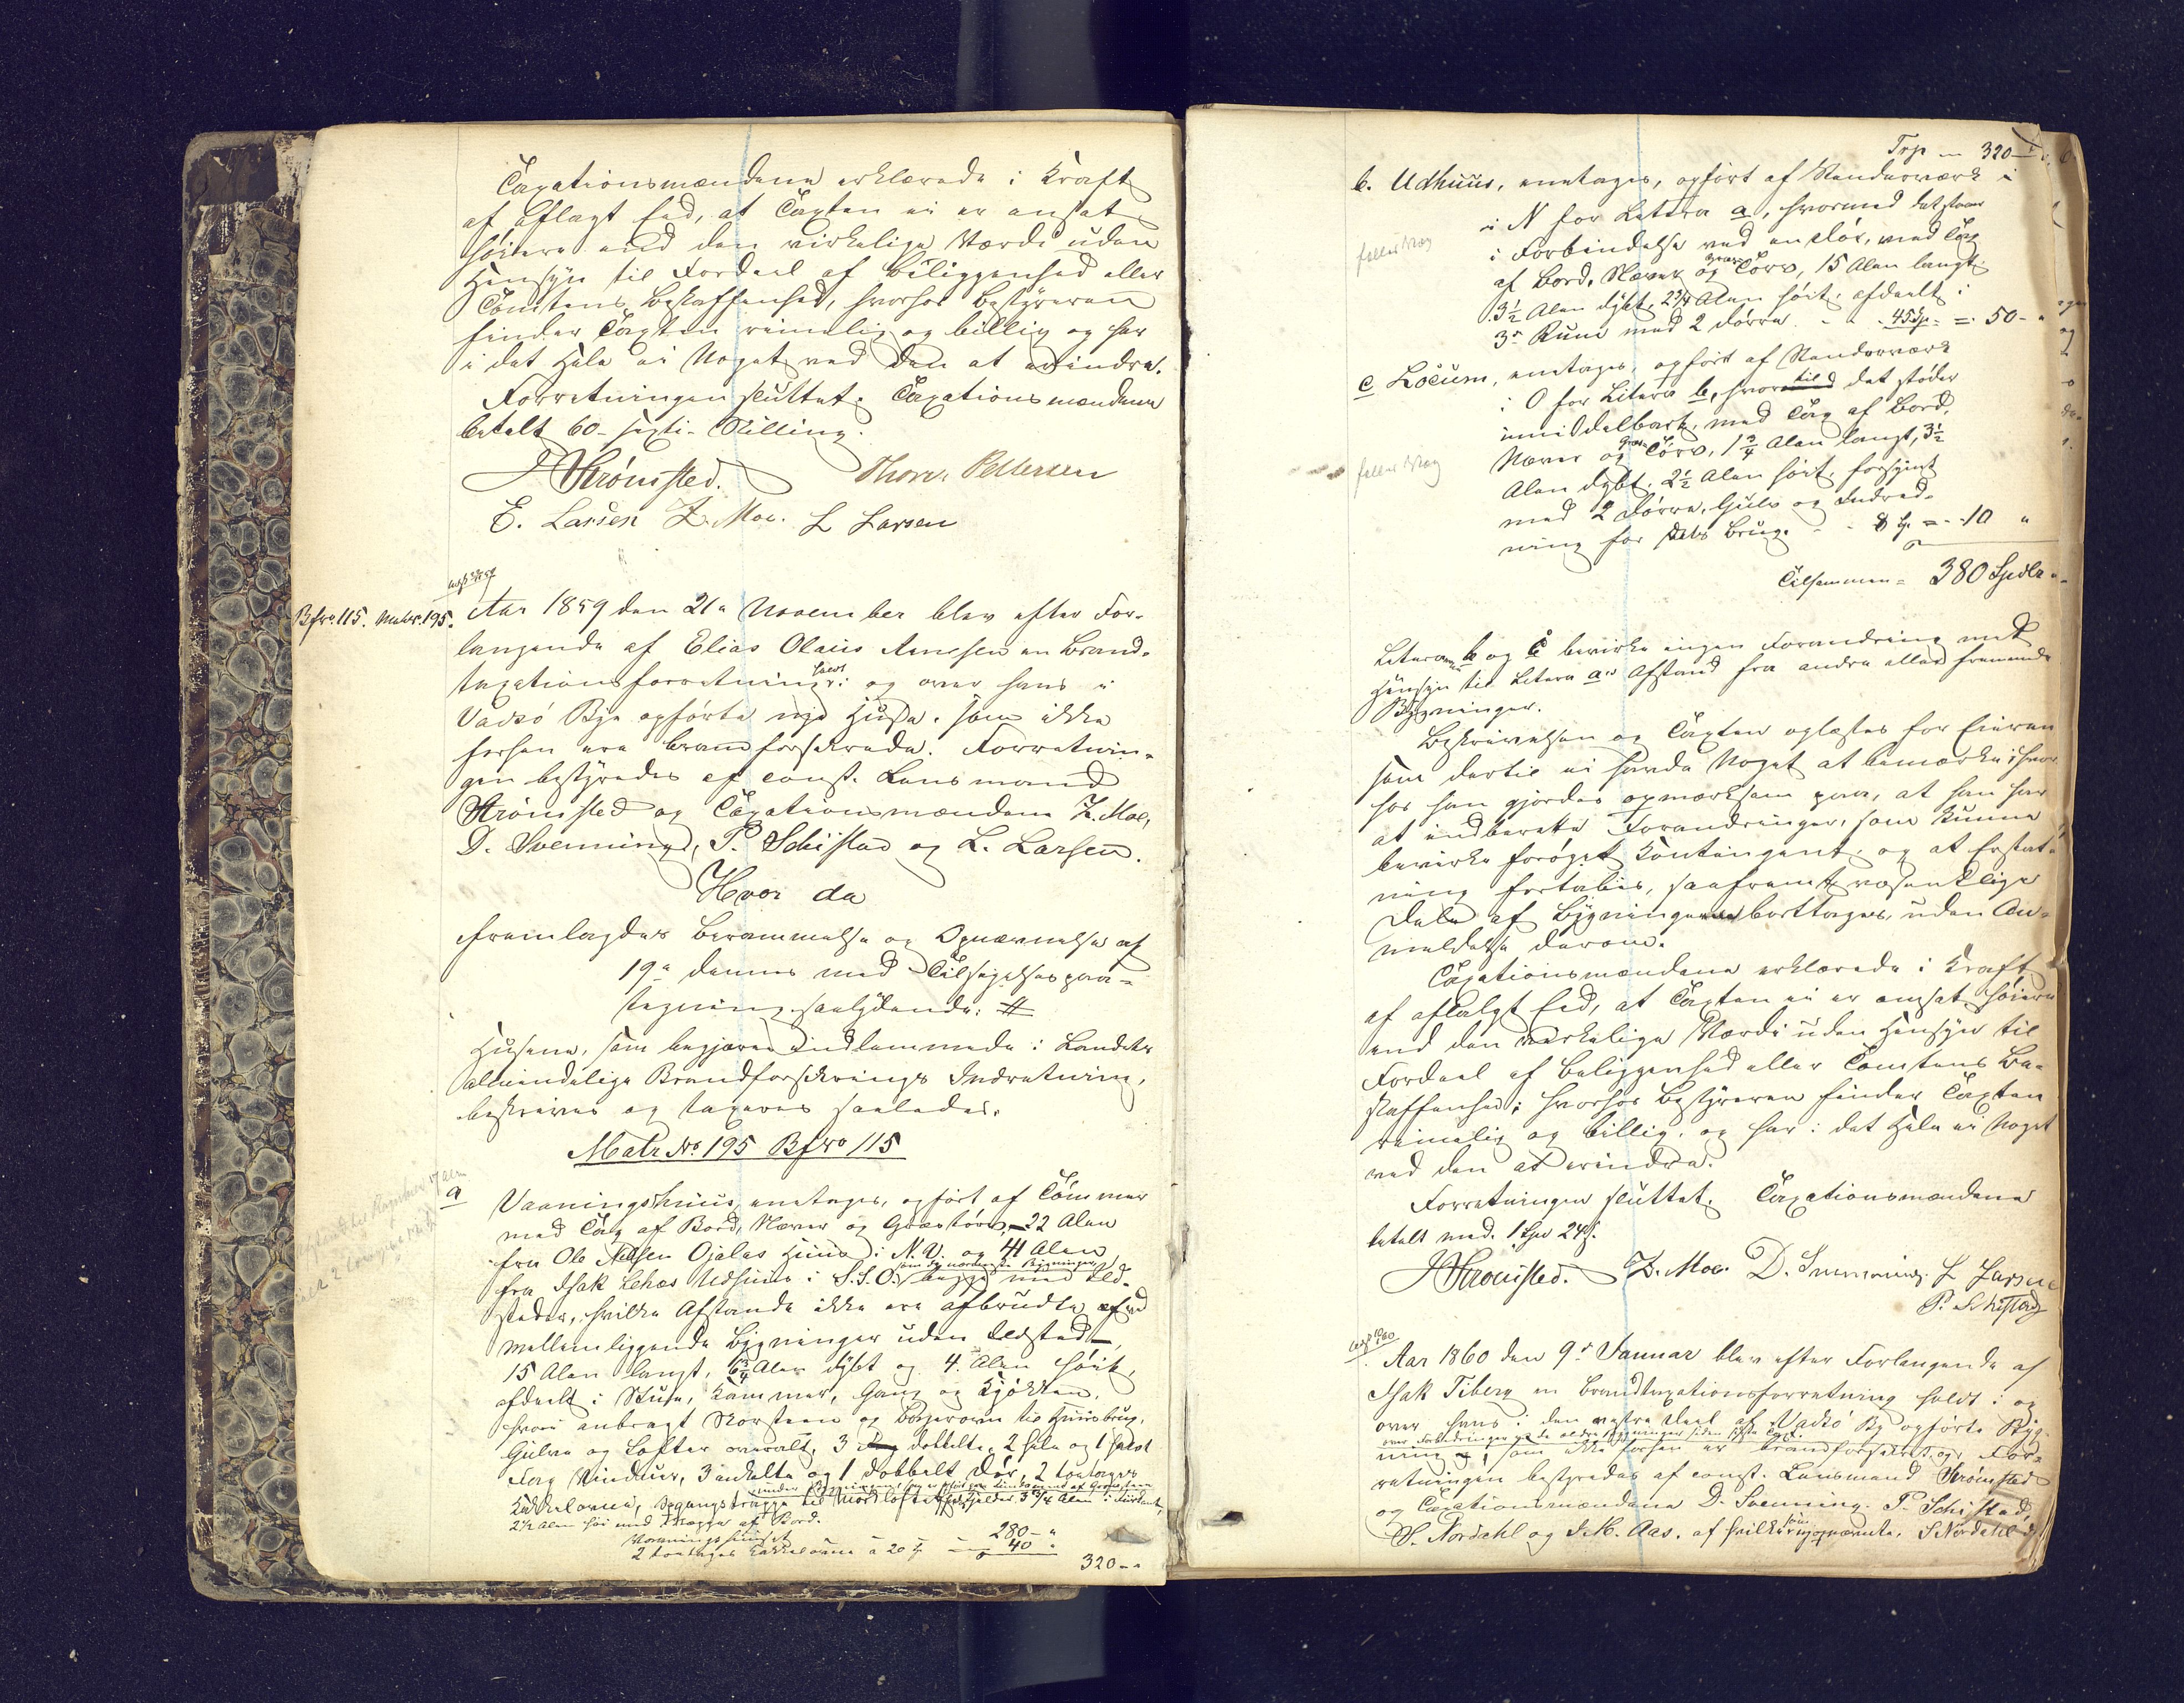 Taxationsmændene erklærede i Kraft
af aflagt Eed, at Taxten ei er ansat
høiere end den virkelige Værdi uden
Hensyn til Fordeel af Beliggenhed eller
Tomtens Beskaffenhed, hvorhos Bestyreren
finder Taxten rimelig og billig og har
i det Hele ei Noget ved den at erindre.
Forretningen sluttet. Taxationsmændene
betalt 60 - sexti - Skilling.
Strömsted. Thorv. Pettersen
E. Larsen Z. Moe. L Larsen
Bfno. 115. Matr. 195.
Aar 1859 den 21a November blev efter For-
langende af Elias Olaus Aanesen en Brand-
taxationsforretning holdt i og over hans i
Vadsö Bye opførte nye Huse, som ikke
forhen ere brandforsikrede. Forretnin-
gen bestyredes af const. Lensmand
Strömsted og Taxationsmændene Z. Moe,
D. Svenning, P. Schistad og L. Larsen.
Hvor da
fremlagdes Berammelse og Opnævnelse af
19a dennes med Tilsigelsespaa-
tegning saalydende: #
Husene, som begjæres indlemmede i Landets
almindelige Brandforsikrings Indretning,
beskrives og taxeres saaledes.
Matr No 195 Bfno 115
a Vaaningshuus, eenetages, opført af Tømmer
med Tag af Bord, Næver og Græstørv, 22 Alen
fra Ole Nilsen Ojalas Huus i N.V. og 41 Alen
som de nærmeste Bygninger
fra Isak Lehos Udhuus i S.S.O. begge med Ild-
steder, hvilke Afstande ikke ere afbrudte af
mellemliggende Bygninger uden Ildsted -
15 Alen langt, 6 3/4 Alen dybt og 4 Alen høit,
afdeelt i Stue, Kammer, Gang og Kjøkken,
hvori anbragt Skorsteen og Bagerovn til Huusbrug.
Gulve og Lofter overalt, 3 dobbelte, 2 hele og 1 halvt
Fag Vinduer, 3 enkelte og 1 dobbelt Dør, 2 toetages
Kakkelovne, Opgangstrappe til Mørkloftet, Kjelder 3 3/4 Alen i Fiirkant,
2 1/2 Alen høi med Trappe af Bord.
Vaaningshuset 280 - "
2 toetages Kakkelovne a 20 40 "
320 - "
Trsp 320 -
b. Udhuus, eenetages, opført af Stenderværk
i N for Litera a, hvormed det staar
i Forbindelse ved en Dør, med Tag
af Bord, Næver og Græs-Tørv, 15 Alen langt,
3 1/2 Alen dybt, 2 3/4 Alen høit, afdeelt i
3 Rum med 2 Dørre 45 Sp. = 50 - "
c Locum, eenetages, opført af Stenderværk
i O for Litera b, hvortil det støder
umiddelbart, med Tag af Bord,
Næver og Græs-Tørv, 1 3/4 Alen langt, 3 1/2
Alen dybt, 2 1/2 Alen høit, forsynet
med 2 Dørre, Gulv og Indred-
ning for dets Brug. 8 = 10 "
Tilsammen = 380 Spdlr
fælles Væg
fælles Væg
Litera b og c bevirke ingen Forandring med
Hensyn til Litera a's Afstand fra andre eller fremmede
Bygninger.
Beskrivelsen og Taxten oplæstes for Eieren
som dertil ei havde Noget at bemærke; hvor-
hos han gjordes opmærksom paa, at han har
at indberette Forandringer, som kunne
bevirke forøget Kontingent, og at Erstat-
ning fortabes, saafremt væsentlige
Dele af Bygningerne borttages, uden An-
meldelse derom.
Taxationsmændene erklærede i Kraft
af aflagt Eed, at Taxten ei er ansat høiere
end den virkelige Værdi uden Hensyn til
Fordeel af Beliggenhed eller Tomtens Be-
skaffenhed; hvorhos Bestyreren finder Taxten
rimelig og billig, og har i det Hele ei Noget
ved den at erindre.
Forretningen sluttet. Taxationsmændene
betalt med 1 Spd 24 s.
Strömsted. Z. Moe. D. Svenning. L Larsen
P. Schistad
Aar 1860 den 9de Januar blev efter Forlangende af
Isak Tiberg en Brandtaxationsforretning holdt i og
over hans i den vestre Deel af Vadsö By opførte Byg-
over Forbedringer paa de ældre Bygninger siden sidste Taxt
ning, som ikke forhen er brandforsikret. For-
retningen bestyredes af const. Lensmand Strömsted
og Taxationsmændene D. Svenning, P. Schistad,
S. Nordahl og I. H. Aas, af hvilke nyopnævnte, S Nordahl